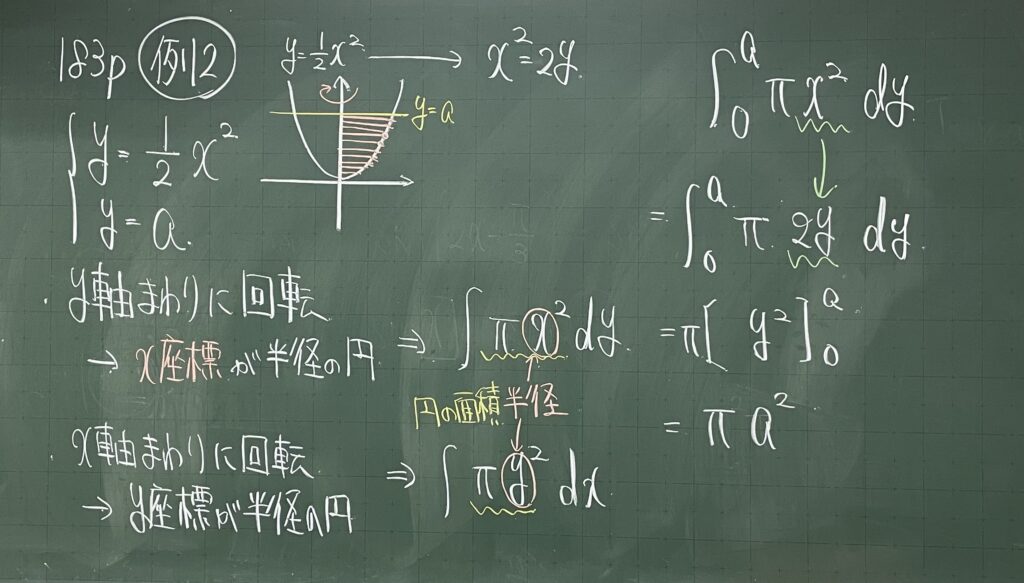 183p 例12
y=1/2x² → x²=2y
y=a
{ y=1/2x²
y=a
・y軸まわりに回転
→ x座標が半径の円 ⇒ ∫πx²dy
円の面積 半径
・x軸まわりに回転
→ y座標が半径の円 ⇒ ∫πy²dx
∫₀ᵃ πx² dy
= ∫₀ᵃ π 2y dy
= π[ y² ]₀ᵃ
= πa²